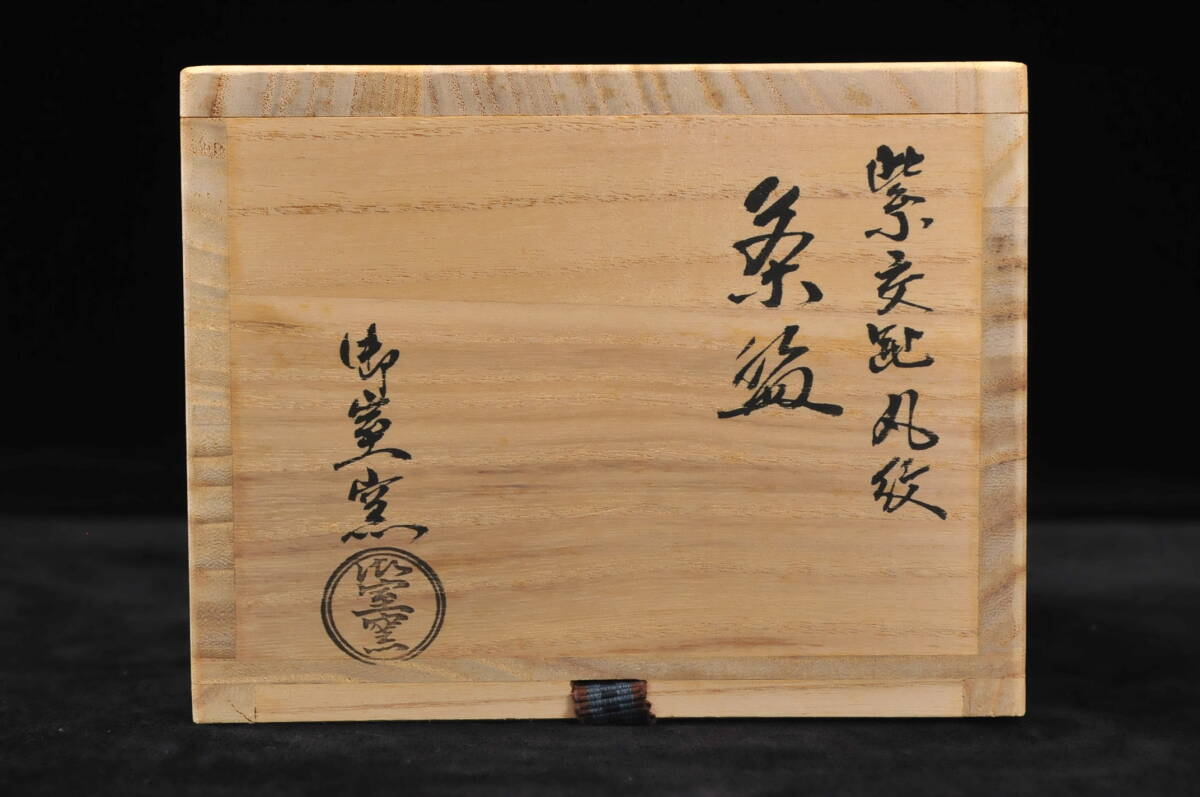 紫交趾丸紋
茶盌
御室窯
御室窯